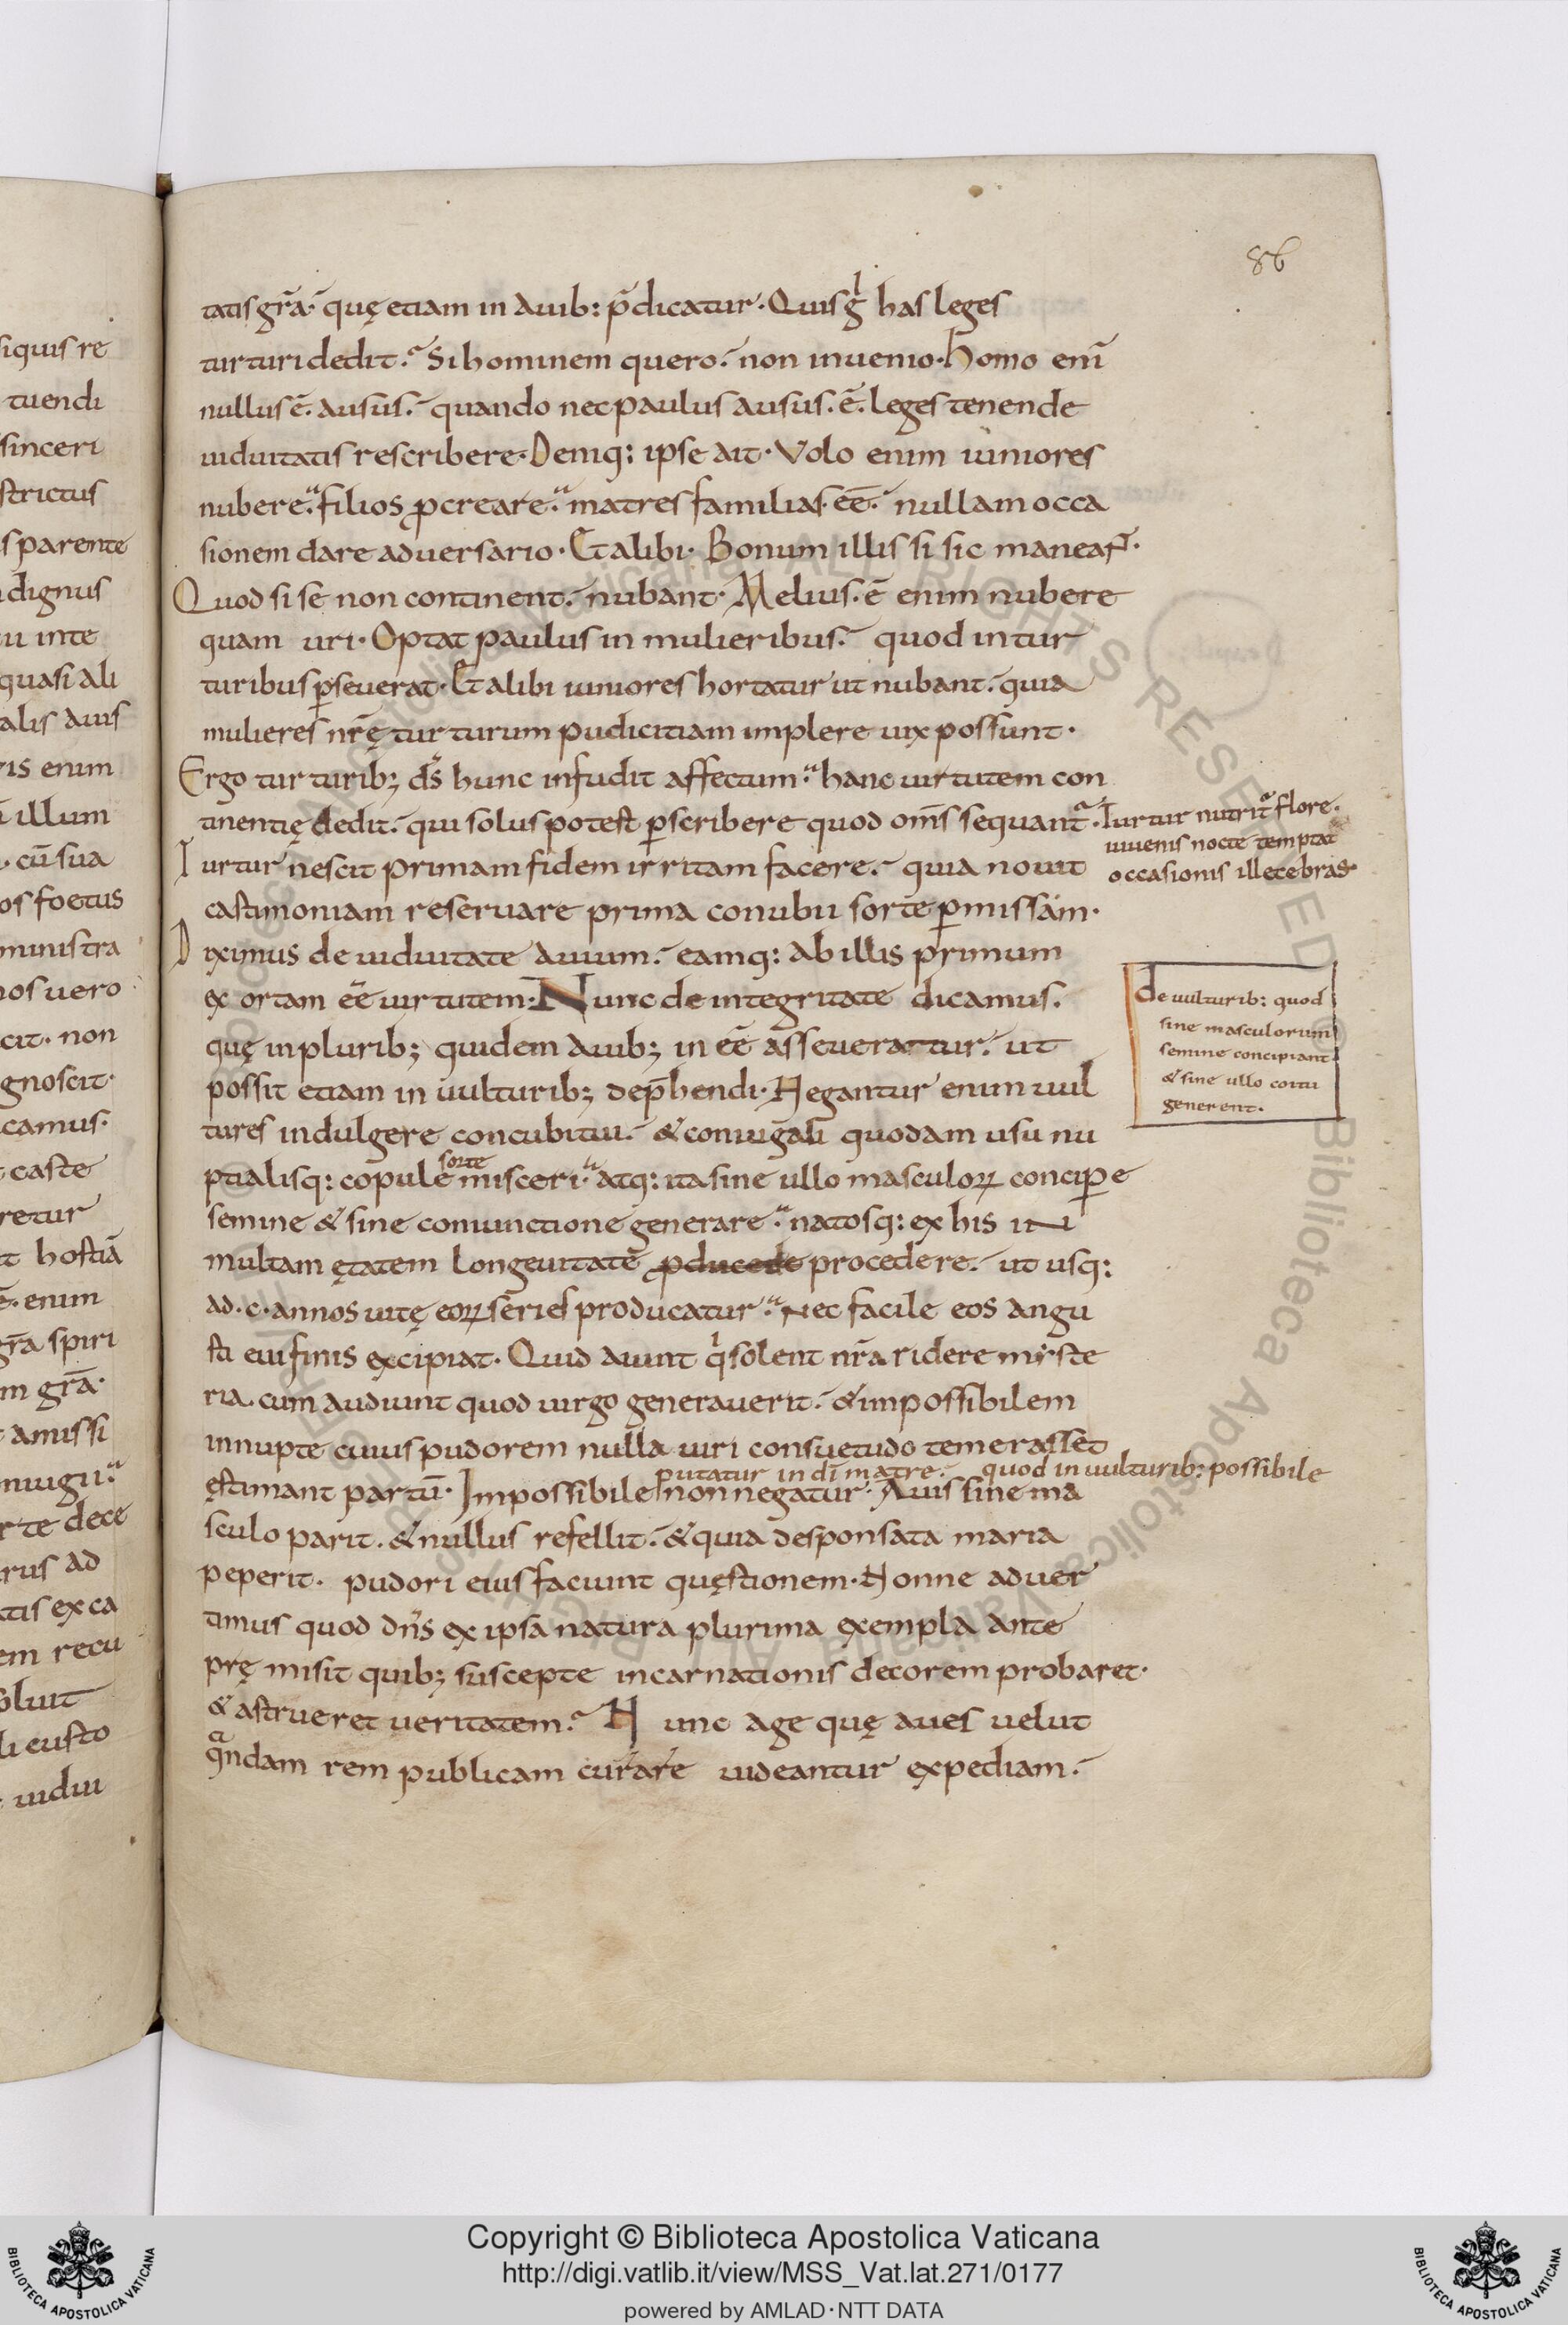 86
tatis gr̄a· quę etiam in auib: p̄dicatur· Quis gͥ has leges
turturi dedit? Si hominem quero· non inuenio· Homo eni̅
nullus e̅· ausus· quando nec paulus ausus· e̅· leges tenende
uiduitatis rescribere· Deniq: ipse ait· Volo enim iuniores
nubere· filios ꝓcreare· matres familias· ee̅· nullam occa
sionem dare aduersario· Et alibi· Bonum illis si sic maneant·
Quod si se non continent· nubant· Melius· e̅ enim nubere
quam uri· Optat paulus in mulieribus· quod in tur
turibus ꝑseuerat· Et alibi iuniores hortatur ut nubant· quia
mulieres nr̄ę turturum pudicitiam implere uix possunt·
Ergo turturib; ds̄ hunc infudit affectum· hanc uirtutem con
tinentię dedit· qui solus potest ꝑscribere quod om̄s sequantᷓ·
Turtur nescit primam fidem irritam facere· quia nouit
castimoniam reseruare prima conubii sorte ꝑmissam·
Diximus de uiduitate auium· eamq: ab illis primum
ex ortam ee̅ uirtutem· Nunc de integritate dicamus·
quę in plurib; quidem auib; in ee̅ asseueratur· ut
possit etiam in uulturib; dep̄hendi· Negantur enim uul
tures indulgere concubitui· & coniugali quodam usu nu
ptialisq: copule sorte misceri· atq: ita sine ullo masculoꝝ concipe
semine & sine coniunctione generare· natosq: ex his in
multam ętatem longeuitate̅ ꝓducede procedere· ut usq:
ad· c· annos uitę eoꝝ series producatur· nec facile eos angu
sti eui finis excipiat· Quid aiunt qͥ solent nr̄a ridere myste
ria· cum audiunt quod uirgo generauerit· & impossibilem
innupte cuius pudorem nulla uiri consuetudo temerasset
putatur in di̅ matre· quod in uulturib: possibile
ęstimant partu̅· Impossibile non negatur· Auis sine ma
sculo parit· & nullus refellit· & quia desponsata maria
peperit· pudori eius faciunt quęstionem· Nonne aduer
timus quod dn̄s ex ipsa natura plurima exempla ante
prę misit quib; suscepte incarnationis decorem probaret·
& astrueret ueritatem? Nunc age quę aues uelut
qᷓndam rem publicam curare uideantur expediam·
Turtur nutritᷓ flore·
iuuenis nocte temptat
occasionis illecebras·
de uulturib: quod
sine masculorum
semine concipiant
& sine ullo coitu
generent·
siquis re
tuendi
sinceri
strictus
s parente
dignus
u inte
quasi ali
alis auis
ris enim
illum
· cu̅ sua
os foetus
ministra
os uero
cit· non
gnoscit·
camus·
caste
retur
t hostia̅
e̅· enim
gr̄a spiri
m gr̄a·
amissi
niugii·
rte dece
rus ad
tis ex ca
em recu
oluit
li custo
uidui
Copyright © Biblioteca Apostolica Vaticana
http://digi.vatlib.it/view/MSS_Vat.lat.271/0177
powered by AMLAD·NTT DATA
BIBLIOTECA APOSTOLICA VATICANA
BIBLIOTECA APOSTOLICA VATICANA